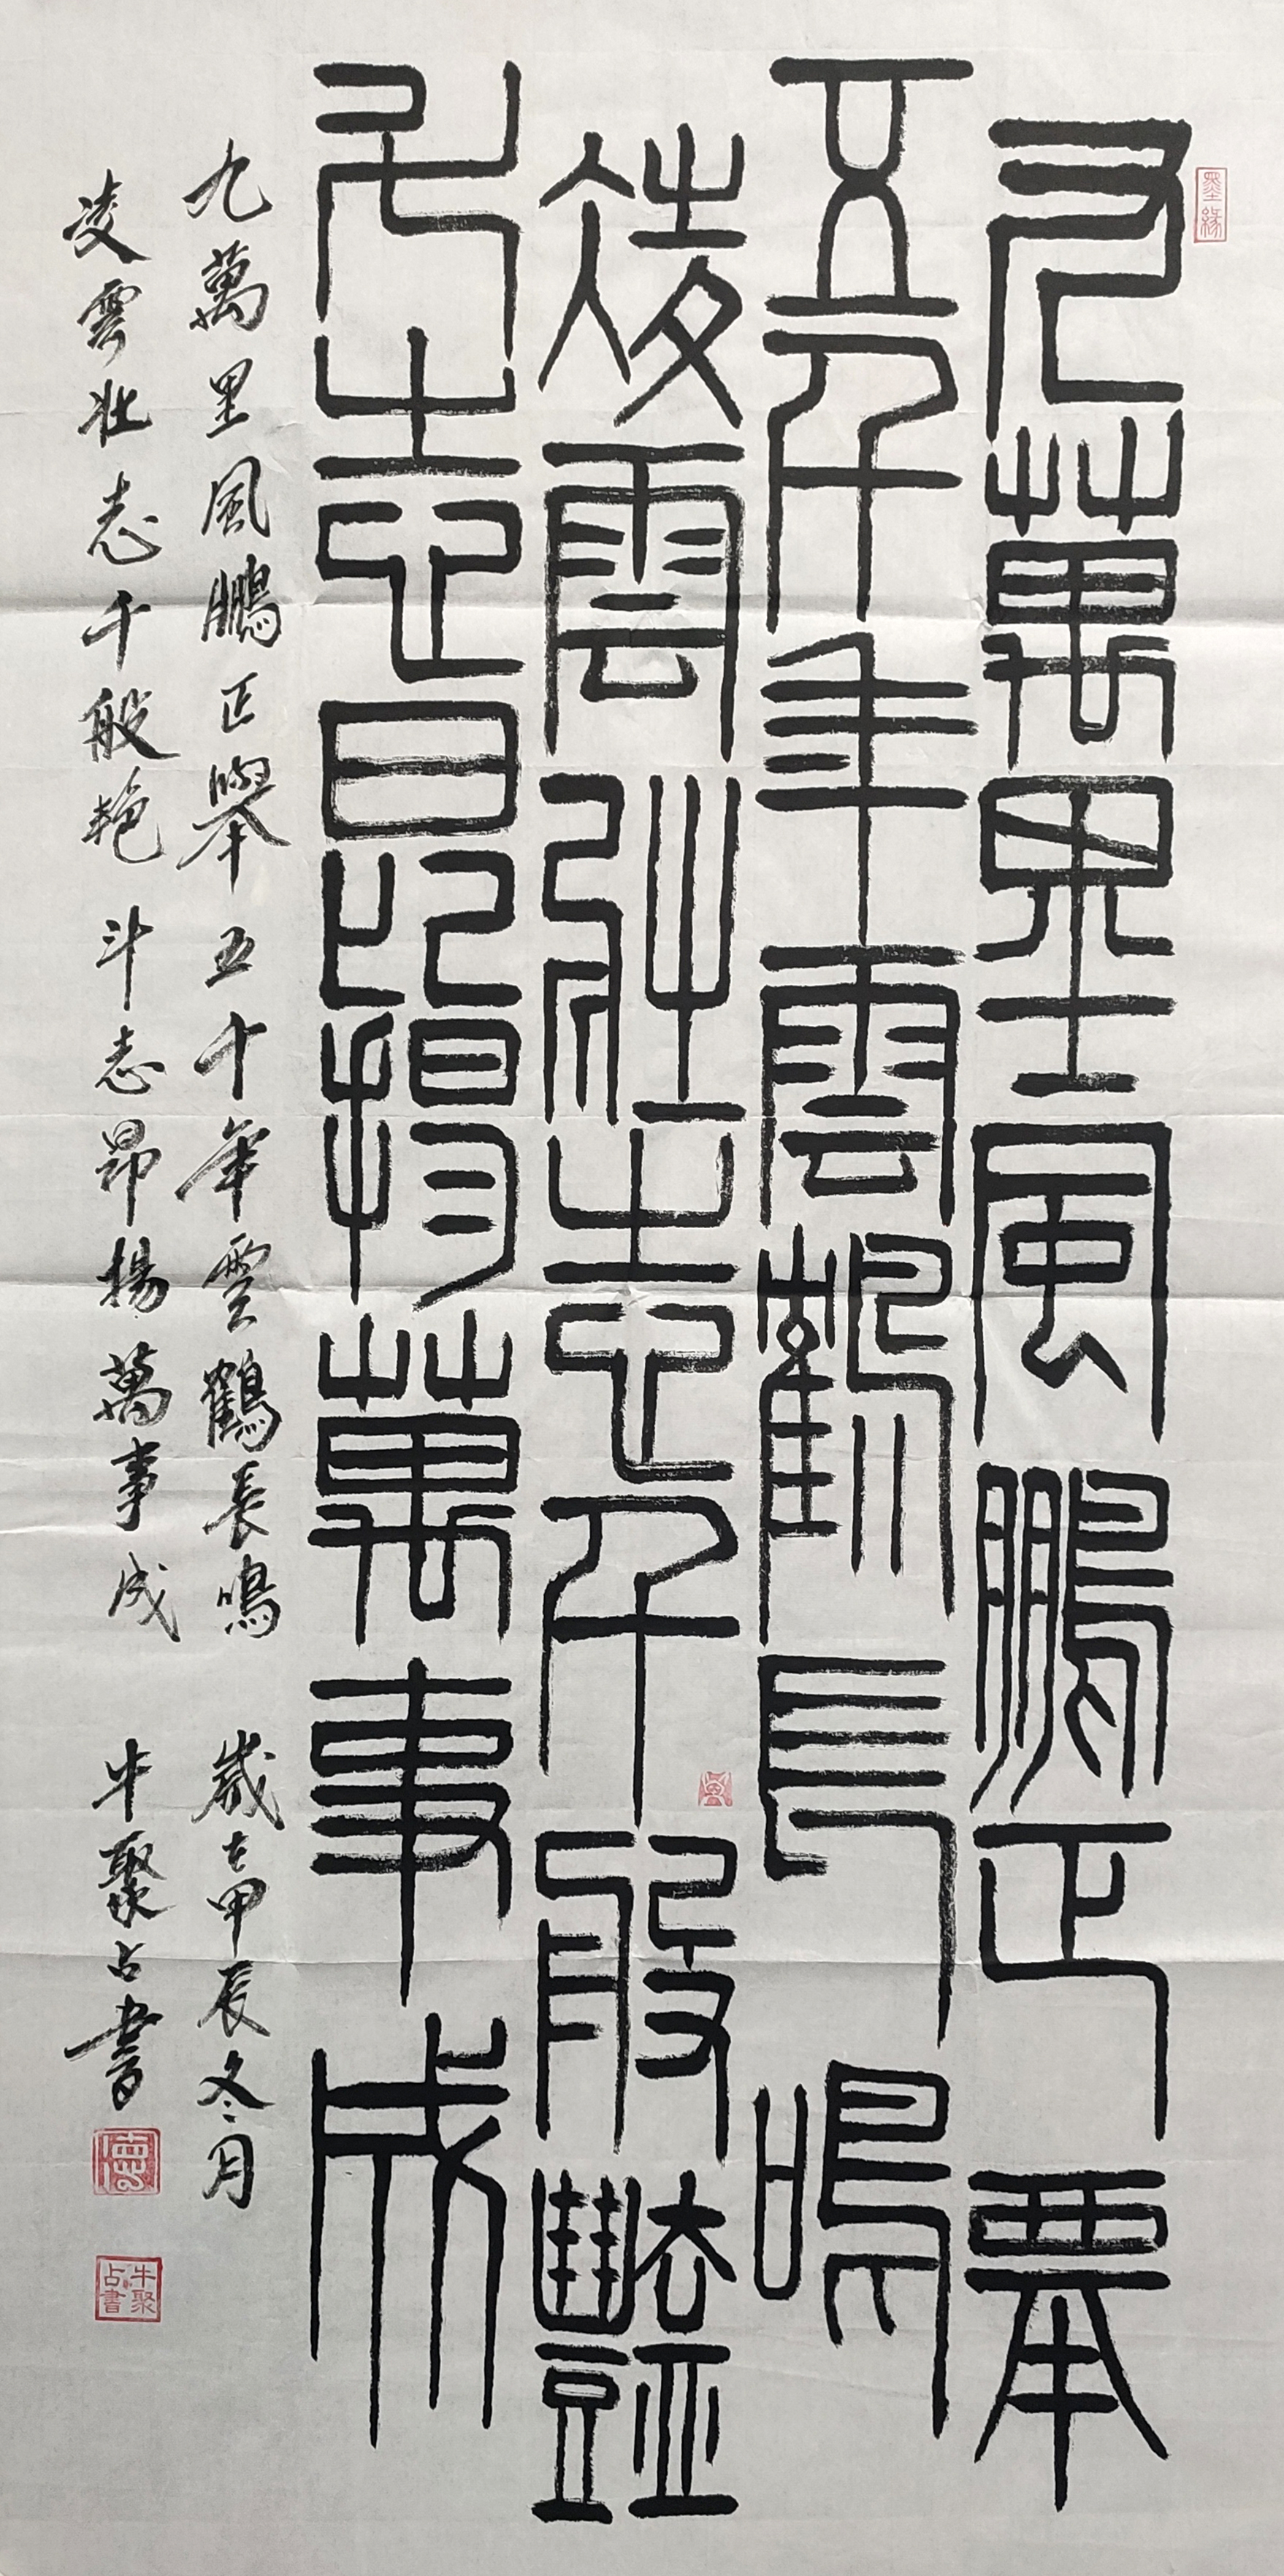 墨緣
九萬里風鵬正舉
五千年雲鶴長鳴
凌雲壯志千般豔
斗志昂揚萬事成
九萬里風鵬正舉五十年雲鶴長鳴 歲在甲辰冬月
凌雲壯志千般艳斗志昂揚萬事成 牛聚占書
德
牛聚占書